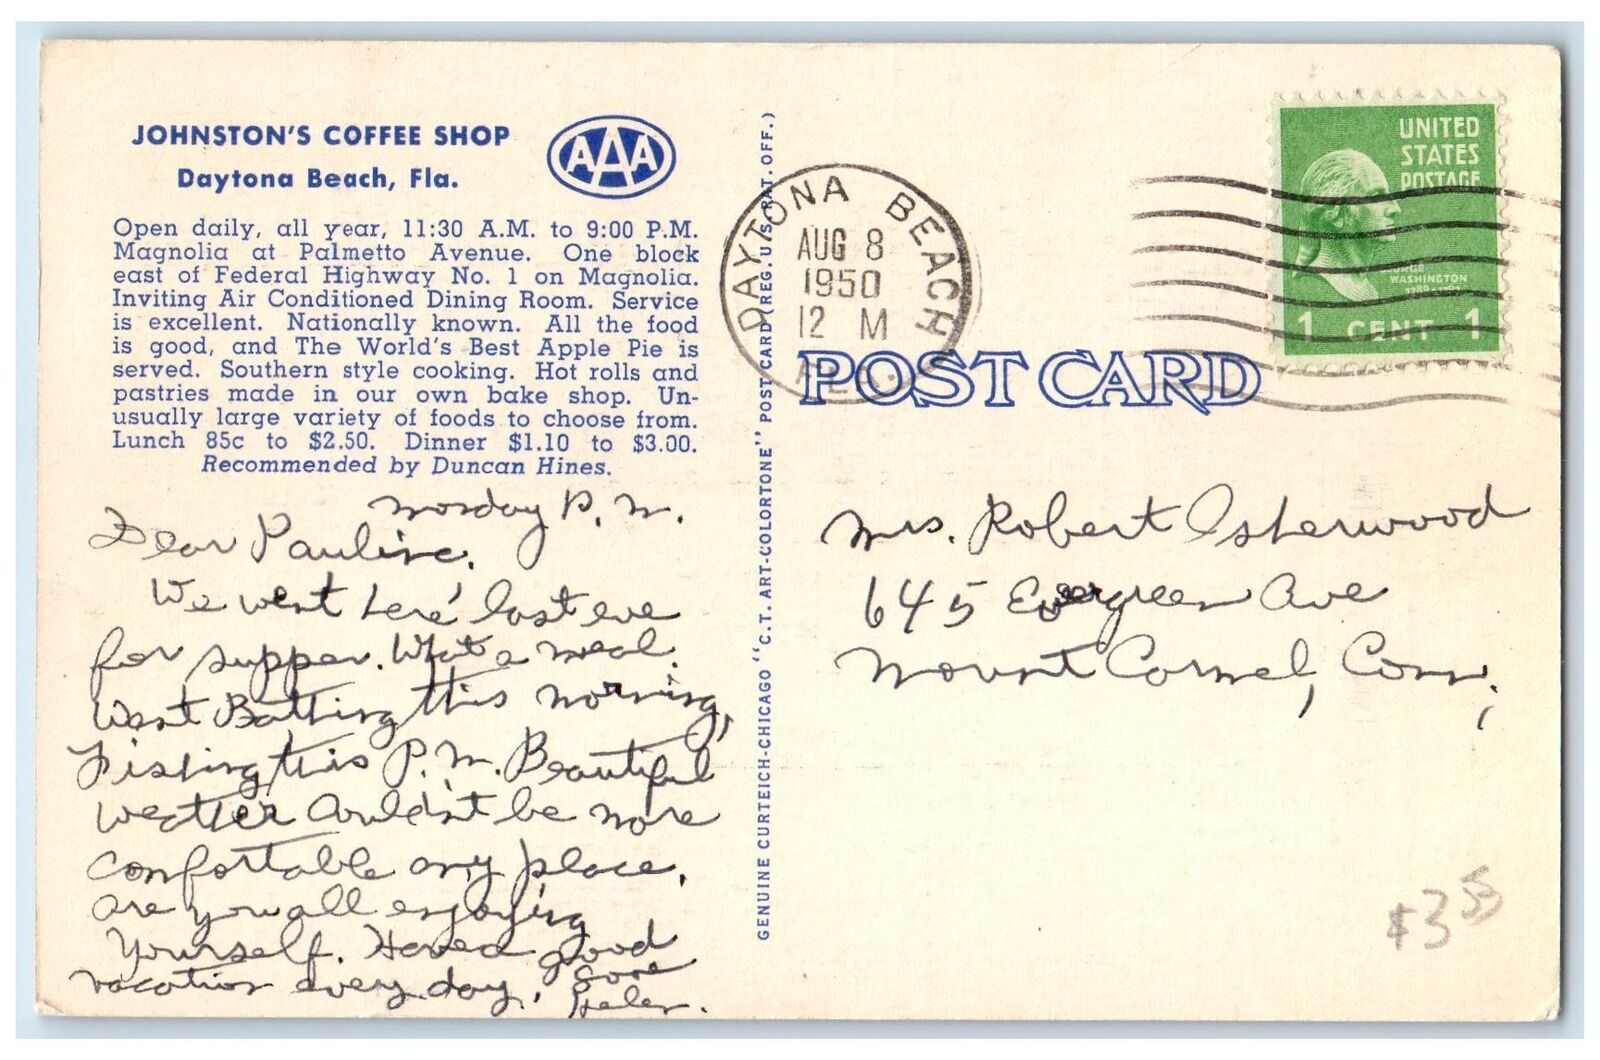 JOHNSTON'S COFFEE SHOP
Daytona Beach, Fla.
AAA
Open daily, all year, 11:30 A.M. to 9:00 P.M.
Magnolia at Palmetto Avenue. One block
east of Federal Highway No. 1 on Magnolia.
Inviting Air Conditioned Dining Room. Service
is excellent. Nationally known. All the food
is good, and The World's Best Apple Pie is
served. Southern style cooking. Hot rolls and
pastries made in our own bake shop. Un-
usually large variety of foods to choose from.
Lunch 85c to $2.50. Dinner $1.10 to $3.00.
Recommended by Duncan Hines.
Monday P.M.
Dear Pauline.
We went here last eve
for supper. What a meal.
Went Batting this morning,
Fishing this P.M. Beautiful
weather Couldn't be more
comfortable any place.
Are you all enjoying
yourself. Haved good
vacation every day. Love
Helen.
GENUINE CURTEICH-CHICAGO "C.T. ART-COLORTONE" POST CARD (REG. U.S. PAT. OFF.)
DAYTONA BEACH
AUG 8
1950
12 M
FLA.
POST CARD
UNITED
STATES
POSTAGE
WASHINGTON
1 CENT 1
Mrs. Robert Isherwood
645 Evergreen Ave
Mount Carmel, Conn.
$3.55